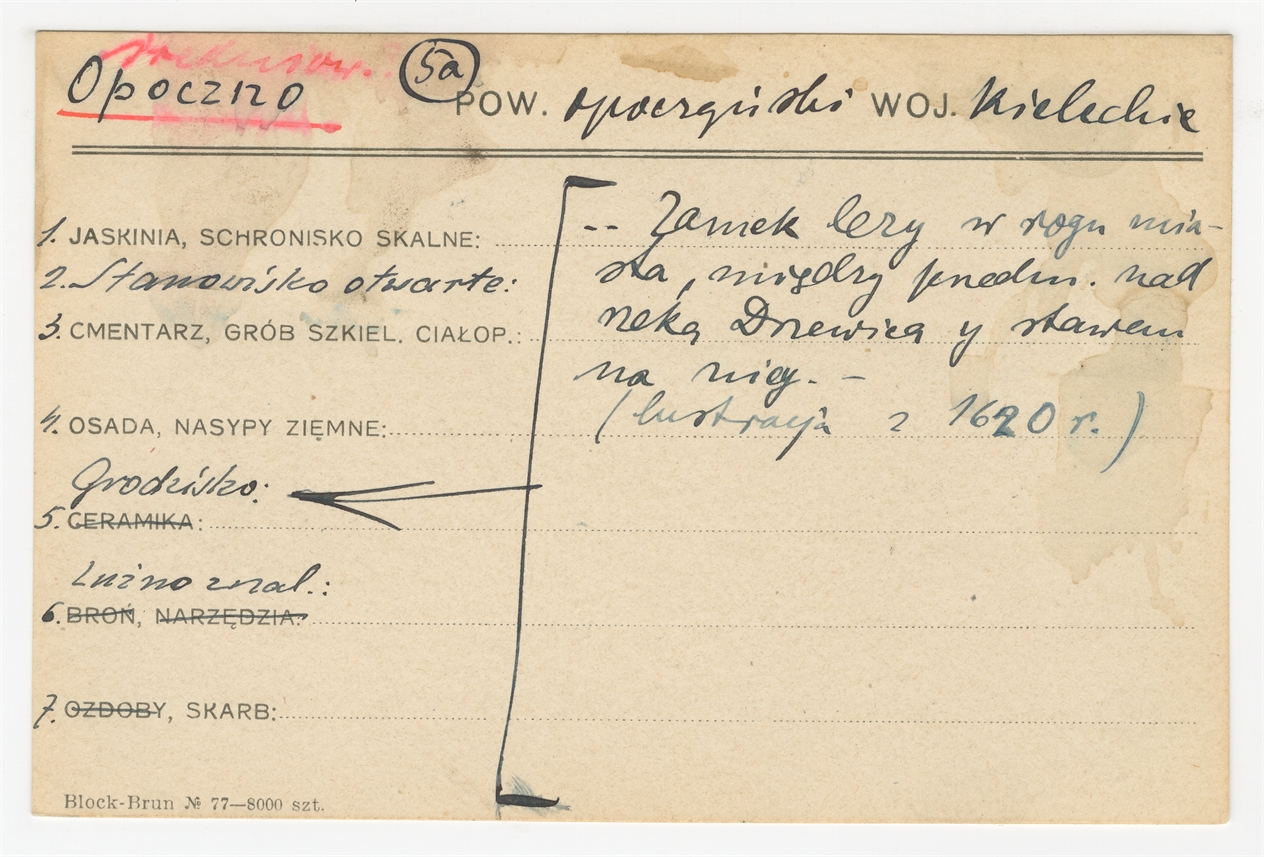 średniow.
Opoczno 5a POW. opoczyński WOJ. Kieleckie
1. JASKINIA, SCHRONISKO SKALNE:
2. Stanowisko otwarte:
3. CMENTARZ, GRÓB SZKIEL. CIAŁOP.:
4. OSADA, NASYPY ZIĘMNE:
Grodzisko:
5. CERAMIKA:
Luźno znal.:
6. BROŃ, NARZĘDZIA:
7. OZDOBY, SKARB:
-- Zamek leży w rogu mia-
sta, między przedm. nad
rzeką Drzewicą y stawem
na niey. –
(lustracja z 1620 r.)
Block-Brun № 77—8000 szt.